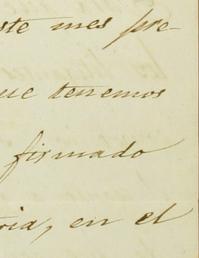 este mes pre-
que tenemos
firmado
oria, en el